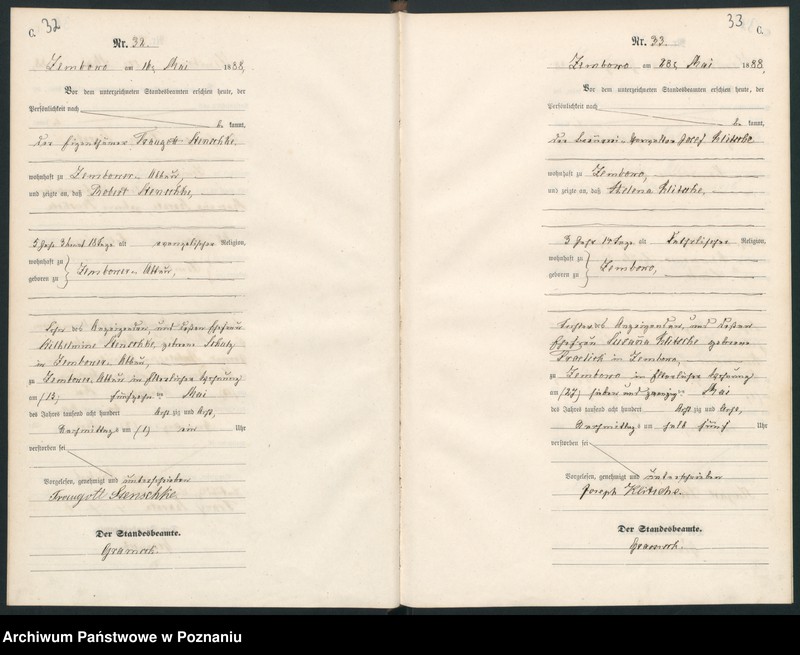 C. 32
Nr. 32.
Zembowo am 14, Mai 1888,
Vor dem unterzeichneten Standesbeamten erschien heute, der
Persönlichkeit nach
be kannt,
der Eigenthümer Traugott Senschke,
wohnhaft zu Zembower-Abbau,
und zeigte an, daß Robert Senschke,
5 Jahr 3 18 Tage alt evangelischer Religion,
wohnhaft zu
geboren zu Zembower-Abbau,
Sohn des Anzeigenden, und dessen Ehefrau
Wilhelmine Senschke, geborene Schulz
in Zembower-Abbau,
zu Zembower-Abbau in elterlicher Wohnung
am Mai
des Jahres tausend acht hundert Acht zig und Acht,
Nachmittags um (1) ein Uhr
verstorben sei
Vorgelesen, genehmigt und unterschrieben
Traugott Saenschke
Der Standesbeamte.
33 C.
Nr. 33.
Zembowo am 28, Mai 1888,
Vor dem unterzeichneten Standesbeamten erschien heute, der
Persönlichkeit nach
be kannt,
der Brennerei-Verwalter Josef Klitsche
wohnhaft zu Zembowo,
und zeigte an, daß Helena Klitsche,
3 Jahr 14 Tage alt katholischer Religion,
wohnhaft zu
geboren zu Zembowo,
Tochter des Anzeigenden, und dessen
Ehefrau Susanna Klitsche geborene
in Zembowo,
zu Zembowo in elterlicher Wohnung
am (27) sieben und zwanzig Mai
des Jahres tausend acht hundert Acht zig und Acht,
Nachmittags um halb fünf Uhr
verstorben sei
Vorgelesen, genehmigt und unterschrieben
Joseph Klitsche.
Der Standesbeamte.
Archiwum Państwowe w Poznaniu